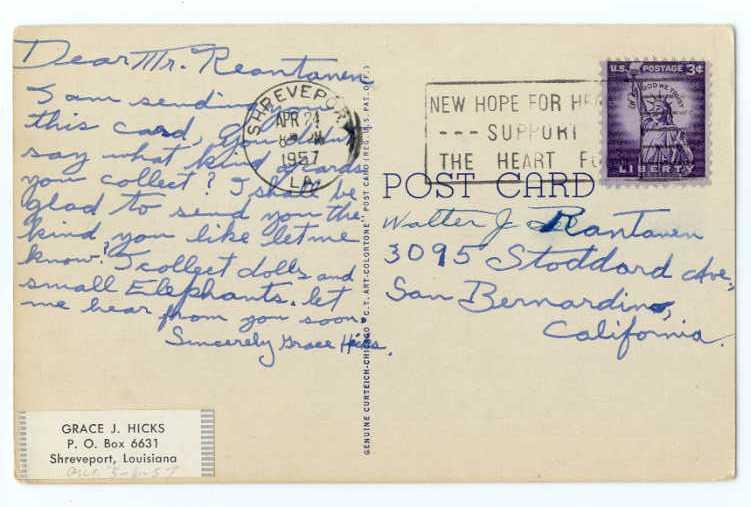 Dear Mr. Reantanen
I am sending you
this card, you didn't
say what kind cards
you collect? I shall be
glad to send you the
kind you like let me
know. I collect dolls and
small Elephants. let
me hear from you soon
Sincerely Grace Hicks.
GRACE J. HICKS
P. O. Box 6631
Shreveport, Louisiana
5-1-57
SHREVEPORT
APR 24
1957
LA.
GENUINE CURTEICH-CHICAGO "C.T. ART-COLORTONE" POST CARD (REG. U.S. PAT. OFF.)
NEW HOPE FOR
--- SUPPORT
THE HEART
U.S. POSTAGE 3¢
IN GOD WE TRUST
LIBERTY
POST CARD
Walter J. Rantanen
3095 Stoddard Ave,
San Bernardino,
California.